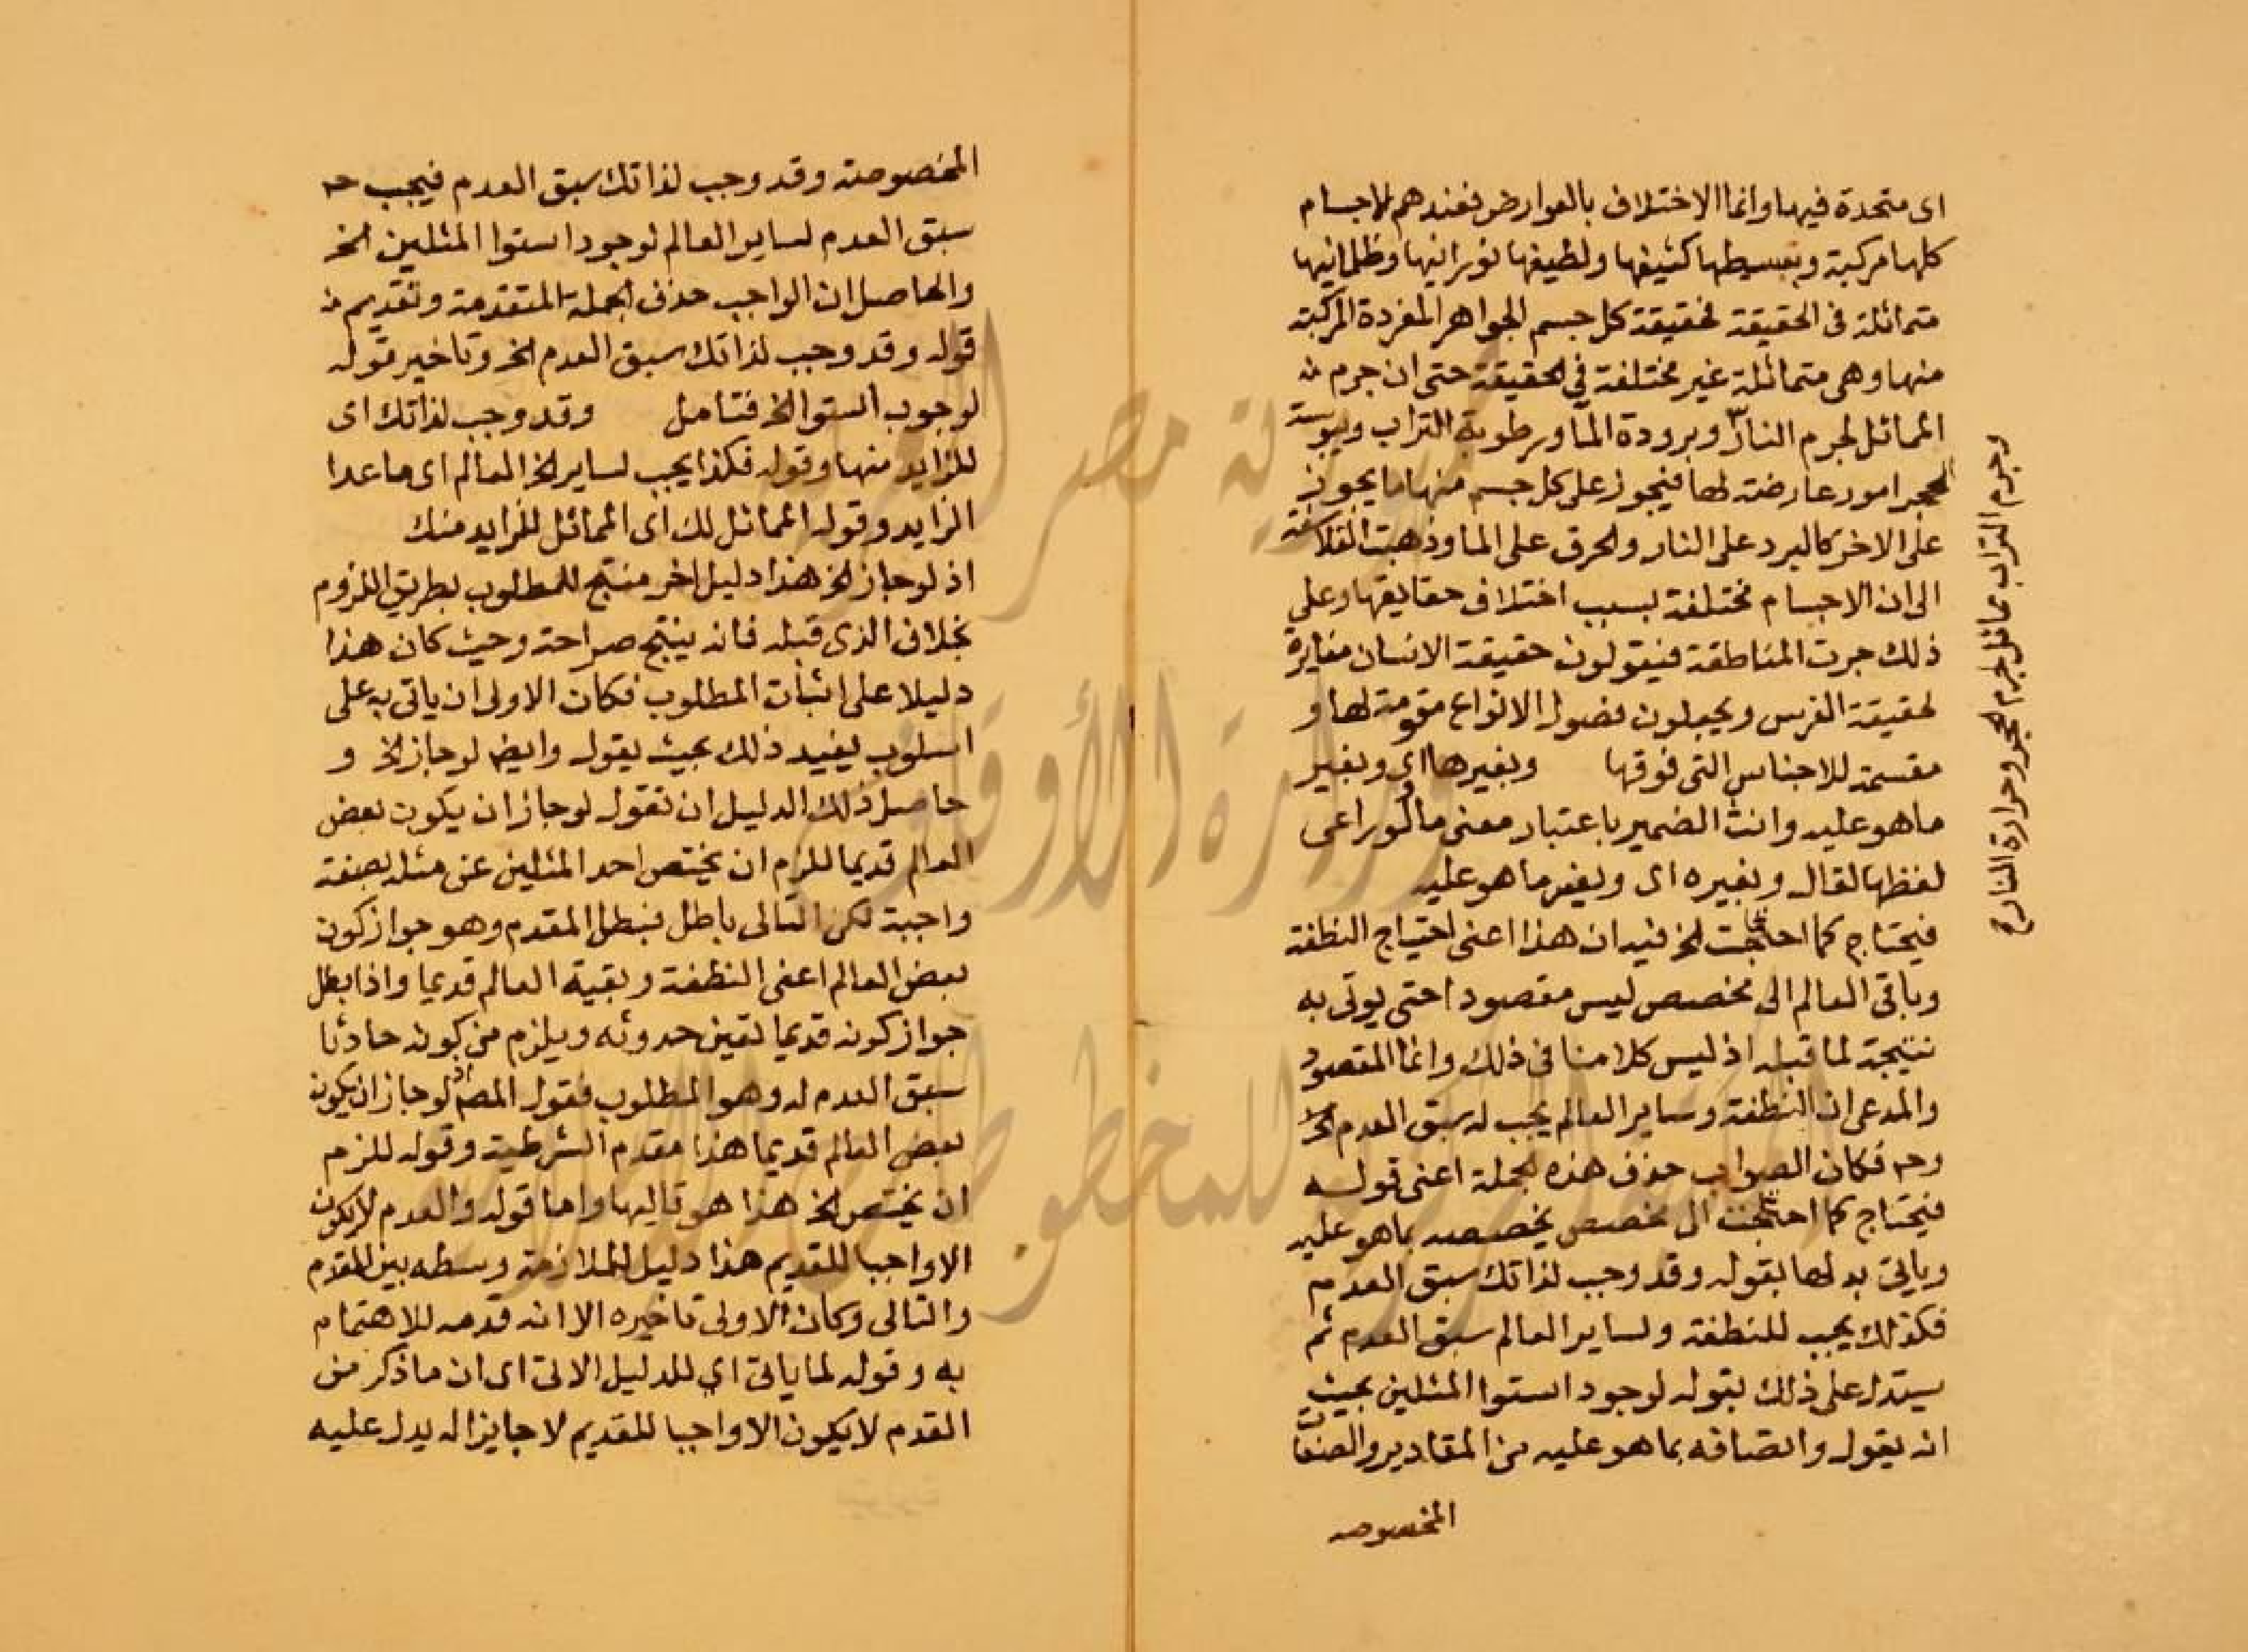 اى متحدة فيها وانما الاختلاف بالعوارض فعندهم الاجسام
كلها مركبة وبسيطها كثيفها ولطيفها نورانيها وظلمانيها
متماثلة فى الحقيقة فحقيقة كل جسم الجواهر المفردة المركبة
منها وهى متماثلة غير مختلفة في الحقيقة حتى ان جرم
المماثل لجرم النار وبرودة الما ورطوبة التراب ويبوسة
الحجر امور عارضة لها فيجوز على كل جسم منها ما يجوز
على الاخر كالبرد على النار والحرق على الما وذهبت الفلاسفة
الى ان الاجسام مختلفة بسبب اختلاف حقايقها وعلى
ذلك جرت المناطقة فيقولون حقيقة الانسان مغايرة
لحقيقة الفرس ويجعلون فصول الانواع مقومة لها و
مقسمة للاجناس التى فوقها وبغيرها اى وبغير
ما هو عليه وانث الضمير باعتبار معنى ما ولو راعى
لفظها لقال وبغيره اى وبغير ما هو عليه
فيحتاج كما احتاجت الخ فيه ان هذا اعنى احتياج النطفة
وباقى العالم الى مخصص ليس مقصودا حتى يوتى به
نتيجة لما قبله اذ ليس كلامنا فى ذلك وانما المقصود
والمدعى ان النطفة وساير العالم يجب له سبق العدم الخ
وح فكان الصواب حذف هذه الجملة اعنى قوله
فيحتاج كما احتاجت الى مخصص يخصصه بما هو عليه
وياتى بدلها بقوله وقد وجب لذاتك سبق العدم
فكذلك يجب للنطفة ولساير العالم سبق العدم ثم
يستدل على ذلك بقوله لوجود استوا المثلين بحيث
انه يقول واتصافه بما هو عليه من المقادير والصفات
المخصوصه
وجرم التراب مماثل لجرم الحجر وحرارة النار
المخصوصة وقد وجب لذاتك سبق العدم فيجب ح
سبق العدم لساير العالم لوجود استوا المثلين الخ
والحاصل ان الواجب حذف الجملة المتقدمة وتقديم
قوله وقد وجب لذاتك سبق العدم الخ وتاخير قوله
لوجوب استوا الخ فتامل وقد وجب لذاتك اى
للزايد منها وقوله فكذا يجب لساير الخ العالم اى ما عدا
الزايد وقوله المماثل لك اى المماثل للزايد منك
اذ لو جاز الخ هذا دليل اخر منتج للمطلوب بطريق اللزوم
بخلاف الذى قبله فانه ينتج صراحة وحيث كان هذا
دليلا على اثبات المطلوب فكان الاولى ان ياتى به على
اسلوب يفيد ذلك بحيث يقول وايض لو جاز الخ و
حاصل ذلك الدليل ان تقول لو جاز ان يكون بعض
العالم قديما للزم ان يختص احد المثلين عن مثله بصفة
واجبة لكن التالى باطل فبطل المقدم وهو جواز كون
بعض العالم اعنى النطفة وبقية العالم قديما واذا بطل
جواز كونه قديما تعين حدوثه ويلزم من كونه حادثا
سبق العدم له وهو المطلوب فقول المص اذ لو جاز ان يكون
بعض العالم قديما هذا مقدم الشرطية وقوله للزم
ان يختص الخ هذا هو تاليها واما قوله والقدم لا يكون
الا واجبا للقديم هذا دليل الملازمة وسطه بين المقدم
والتالى وكان الاولى تاخيره الا انه قدمه للاهتمام
به وقوله لما ياتى اى للدليل الاتى اى ان ما ذكر من
القدم لا يكون الا واجبا للقديم لا جايزا له يدل عليه
جمهورية مصر العربية
وزارة الأوقاف
المكتبة المركزية للمخطوطات الإسلامية